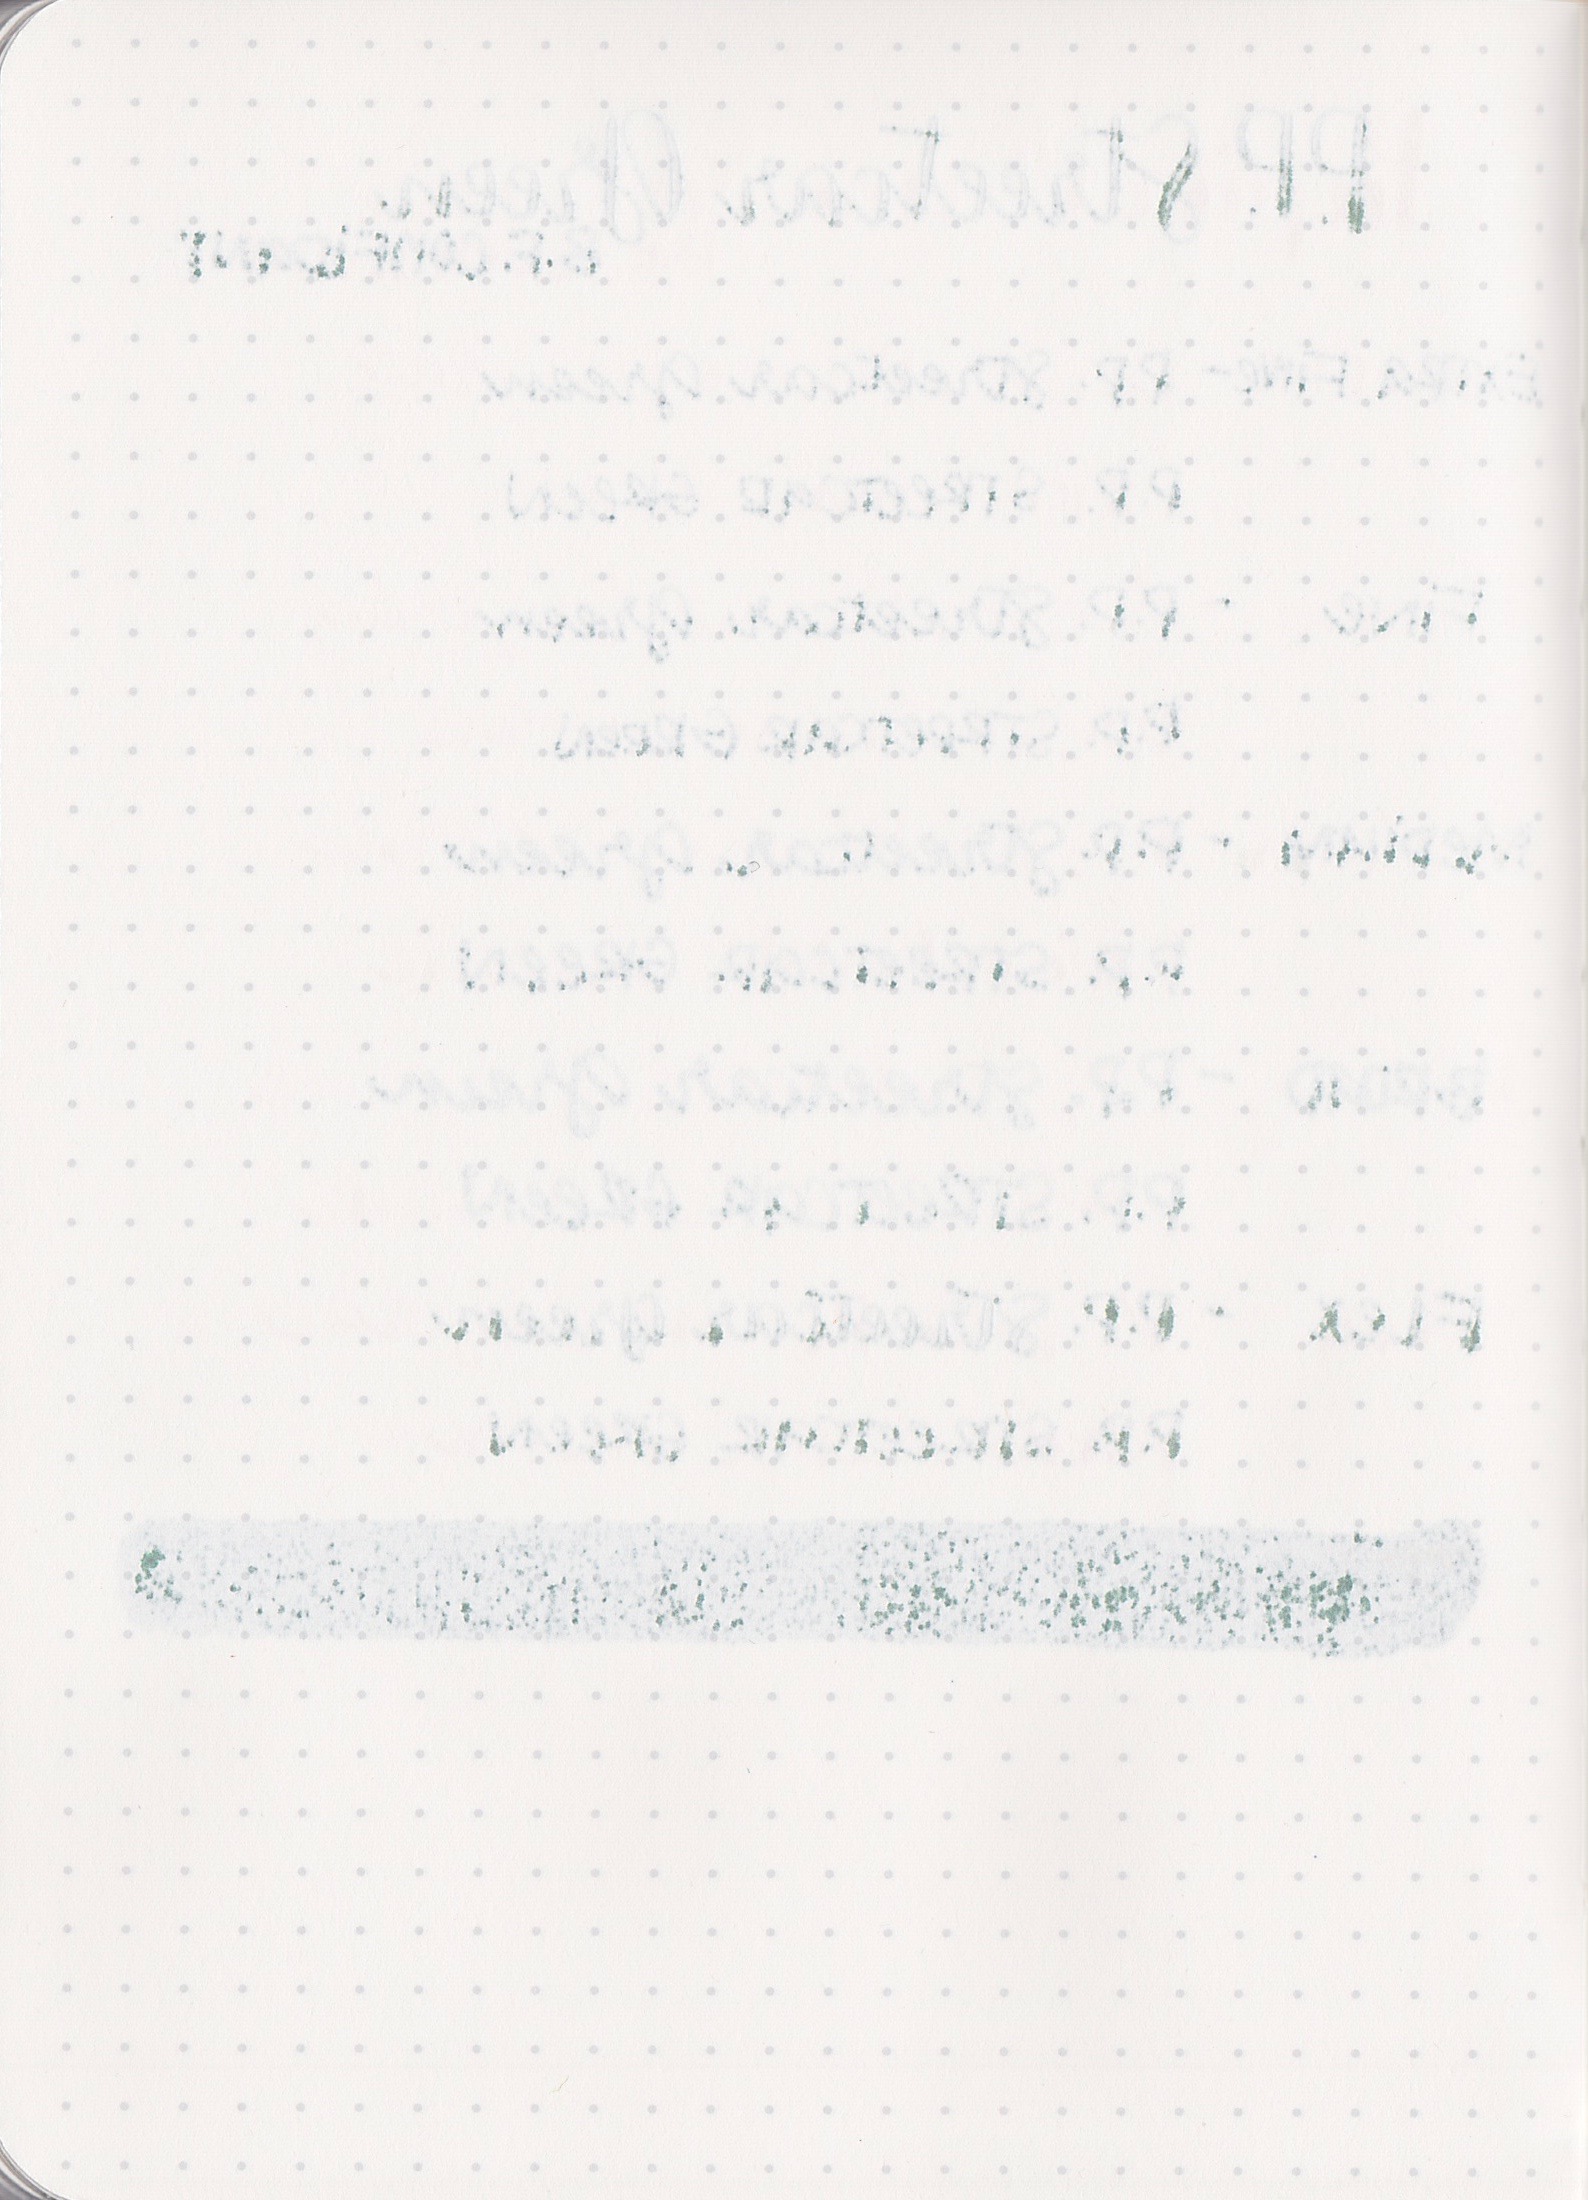 P.P. Streetcar Green
B.F. CONFIDANT
EXTRA FINE - P.P. Streetcar Green
P.P. STREETCAR GREEN
FINE - P.P. Streetcar Green
P.P. STREETCAR GREEN
MEDIUM - P.P. Streetcar Green
P.P. STREETCAR GREEN
BROAD - P.P. Streetcar Green
P.P. STREETCAR GREEN
FLEX - P.P. Streetcar Green
P.P. STREETCAR GREEN